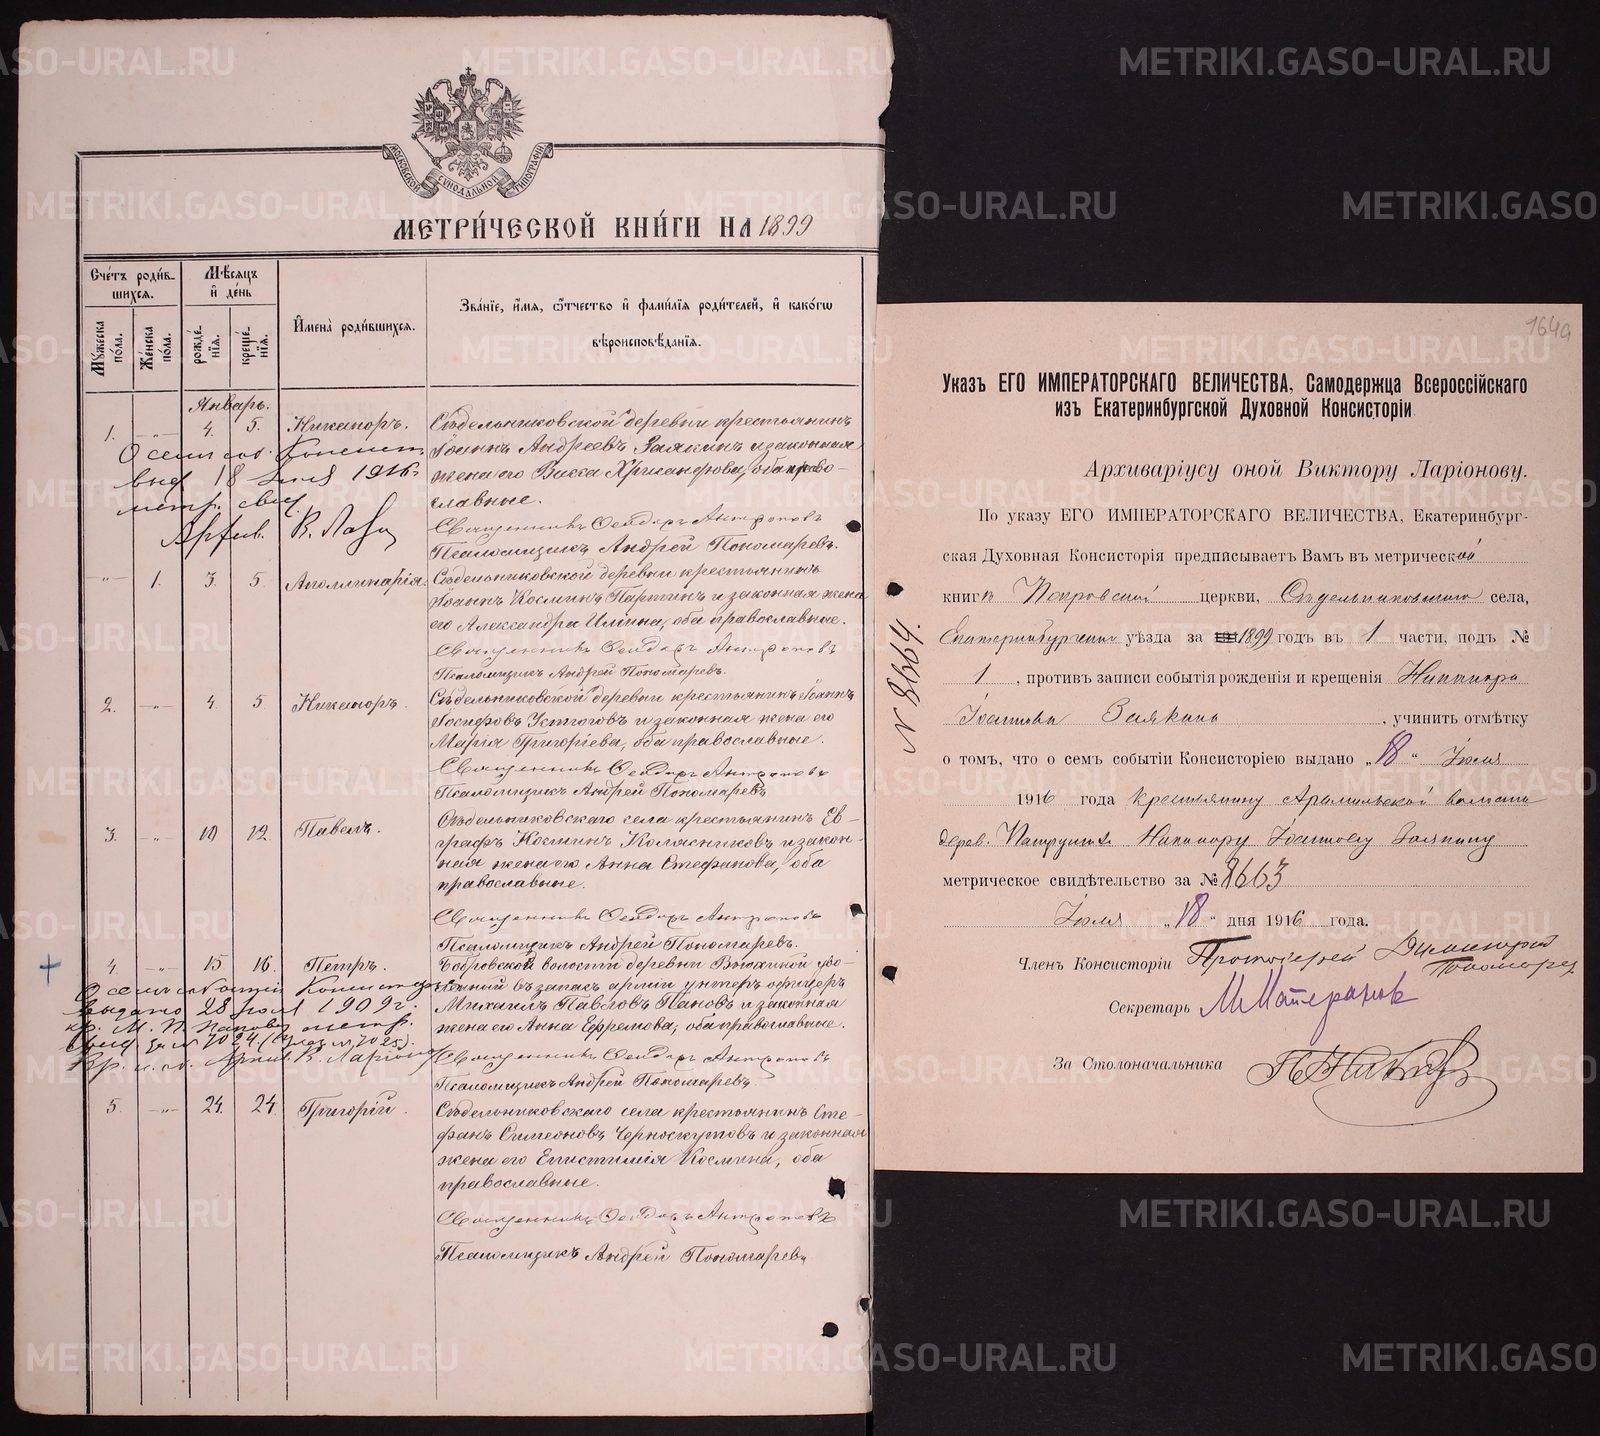 МОСКОВСКОЙ СУНОДАЛЬНОЙ ТИПОГРАФІИ
МЕТРИ́ЧЕСКОЙ КНИ́ГИ НА 1899
Сче́тъ роди́в-
шихсѧ.
Мꙋ́жеска
по́ла.
Же́нска
по́ла.
Мѣ́сѧцъ
и҆ де́нь
рожде́-
нїѧ.
креще́-
нїѧ.
И҆мена̀ роди́вшихсѧ.
Зва́нїе, и҆́мѧ, ѻ҆́тчество и҆ фами́лїѧ роди́телей, и҆ како́гѡ
вѣроисповѣ́данїѧ.
Январь.
1. -„- 4. 5. Никаноръ.
Сѣдельниковской деревни крестьянинъ
Іоаннъ Андреевъ Заякинъ и законная
жена его Васса Хрисанфова, оба право-
славные.
О семъ соб. Консист.
выд 18 Іюля 1916 г.
метр. свид.
Архив. В. Лар
Священникъ Ѳеодоръ Антроповъ
Псаломщикъ Андрей Пономаревъ.
-„- 1. 3. 5. Аполлинарія.
Сѣдельниковской деревни крестьянинъ
Іоаннъ Косминъ Партинъ и законная жена
его Александра Ильина, оба православные.
Священникъ Ѳеодоръ Антроповъ
Псаломщикъ Андрей Пономаревъ.
2. -„- 4. 5 Никаноръ.
Сѣдельниковской деревни крестьянинъ Іоаннъ
Іосифовъ Устюговъ и законная жена его
Марія Григоріева, оба православные.
Священникъ Ѳеодоръ Антроповъ
Псаломщикъ Андрей Пономаревъ
3. -„- 10 12. Павелъ.
Сѣдельниковскаго села крестьянинъ Ев-
графъ Косминъ Колясниковъ и закон-
ная жена его Анна Стефанова, оба
православные.
Священникъ Ѳеодоръ Антроповъ
Псаломщикъ Андрей Пономаревъ.
4. -„- 15 16. Петръ.
Бобровской волости деревни Вьюхиной уво-
ленный въ запасъ арміи унтеръ офицеръ
Михаилъ Павловъ Пановъ и законная
жена его Анна Ефремова, оба православные.
О семъ событіи Консист.
выдано 28 1909 г.
кр. М. П. Панову метр.
свид. за № 7024 (Указ № 7025).
Вр. и. об. Архив. В. Ларіоно
Священникъ Ѳеодоръ Антроповъ
Псаломщикъ Андрей Пономаревъ.
5. -„- 24. 24 Григорій.
Сѣдельниковскаго села крестьянинъ Сте-
фанъ Симеоновъ Черноскутовъ и законная
жена его Епистимія Космина, оба
православные.
Священникъ Ѳеодоръ Антроповъ
Псаломщикъ Андрей Пономаревъ
164а
Указъ ЕГО ИМПЕРАТОРСКАГО ВЕЛИЧЕСТВА, Самодержца Всероссійскаго
изъ Екатеринбургской Духовной Консисторіи.
Архиваріусу оной Виктору Ларіонову.
По указу ЕГО ИМПЕРАТОРСКАГО ВЕЛИЧЕСТВА, Екатеринбург-
ская Духовная Консисторія предписываетъ Вамъ въ метрической
книгѣ Покровской церкви, Сѣдельниковскаго села,
Екатеринбургскаго уѣзда за 1899 годъ въ 1 части, подъ №
1, противъ записи событія рожденія и крещенія Никанора
Іоаннова Заякина, учинить отмѣтку
о томъ, что о семъ событіи Консисторіею выдано „18“ Іюля
1916 года крестьянину Арамильской волости
дерев. Патрушей Никанору Іоаннову Заякину
метрическое свидѣтельство за № 8663
Іюля „18“ дня 1916 года.
№ 8664.
Членъ Консисторіи Протоіерей Димитрій
Пономарев
Секретарь М Матерановъ
За Столоначальника
METRIKI.GASO-URAL.RU